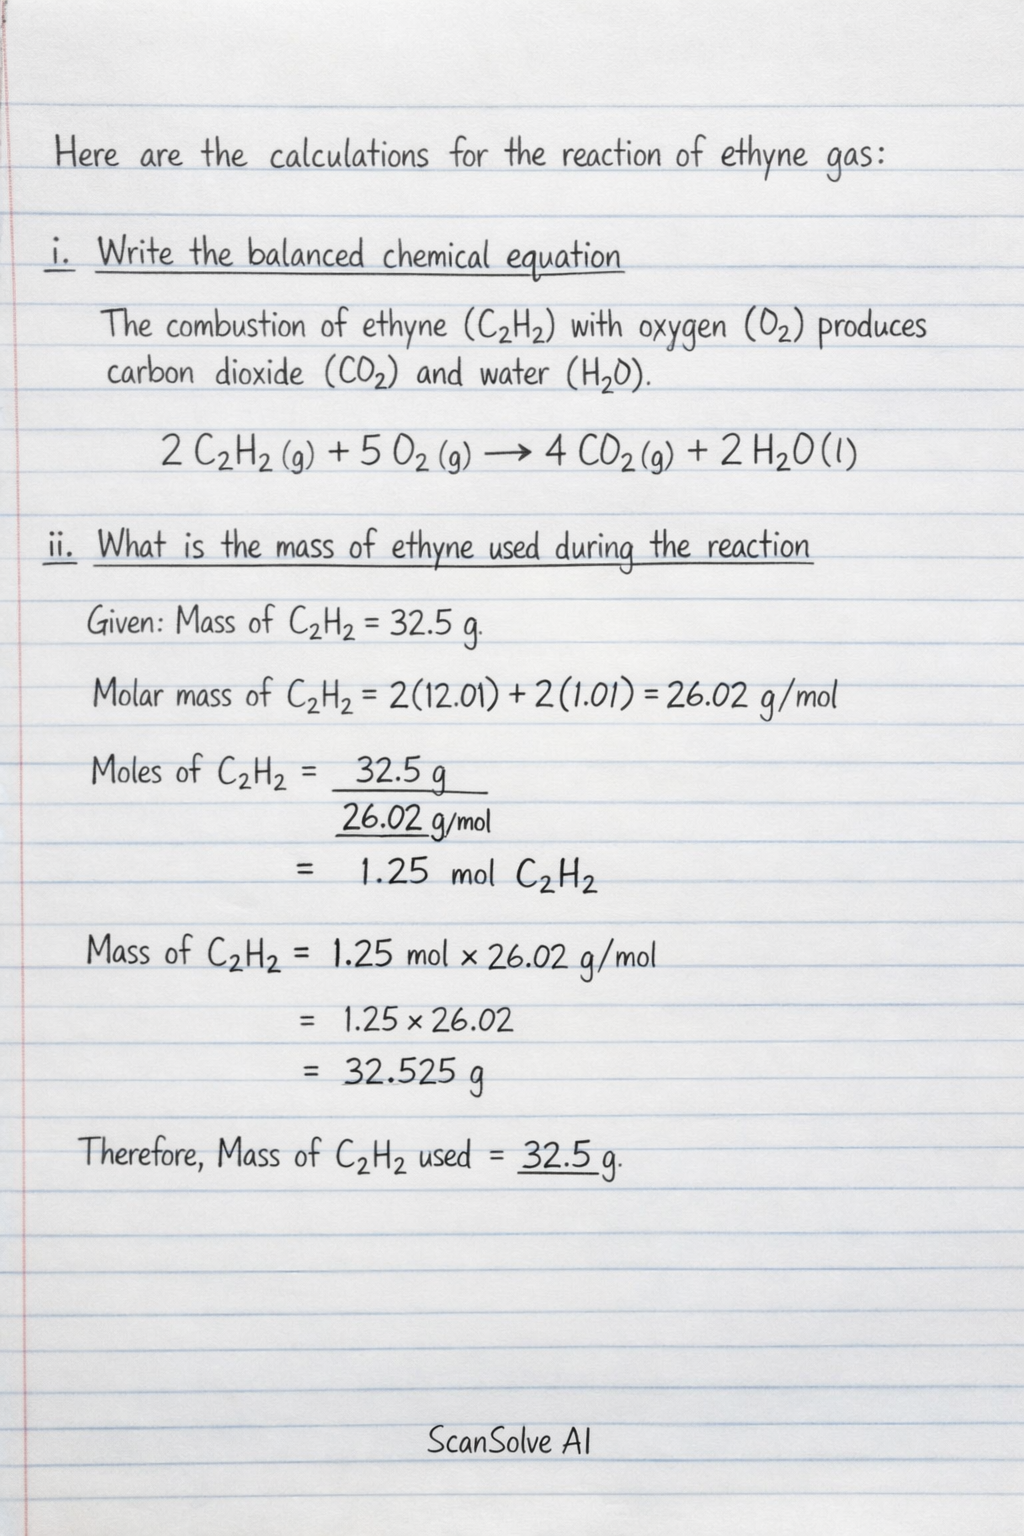 Here are the calculations for the reaction of ethyne gas:
i. Write the balanced chemical equation
The combustion of ethyne (C₂H₂) with oxygen (O₂) produces
carbon dioxide (CO₂) and water (H₂O).
2 C₂H₂ (g) + 5 O₂ (g) → 4 CO₂ (g) + 2 H₂O (l)
ii. What is the mass of ethyne used during the reaction
Given: Mass of C₂H₂ = 32.5 g.
Molar mass of C₂H₂ = 2(12.01) + 2(1.01) = 26.02 g/mol
Moles of C₂H₂ = 32.5 g
26.02 g/mol
= 1.25 mol C₂H₂
Mass of C₂H₂ = 1.25 mol × 26.02 g/mol
= 1.25 × 26.02
= 32.525 g
Therefore, Mass of C₂H₂ used = 32.5 g.
ScanSolve AI